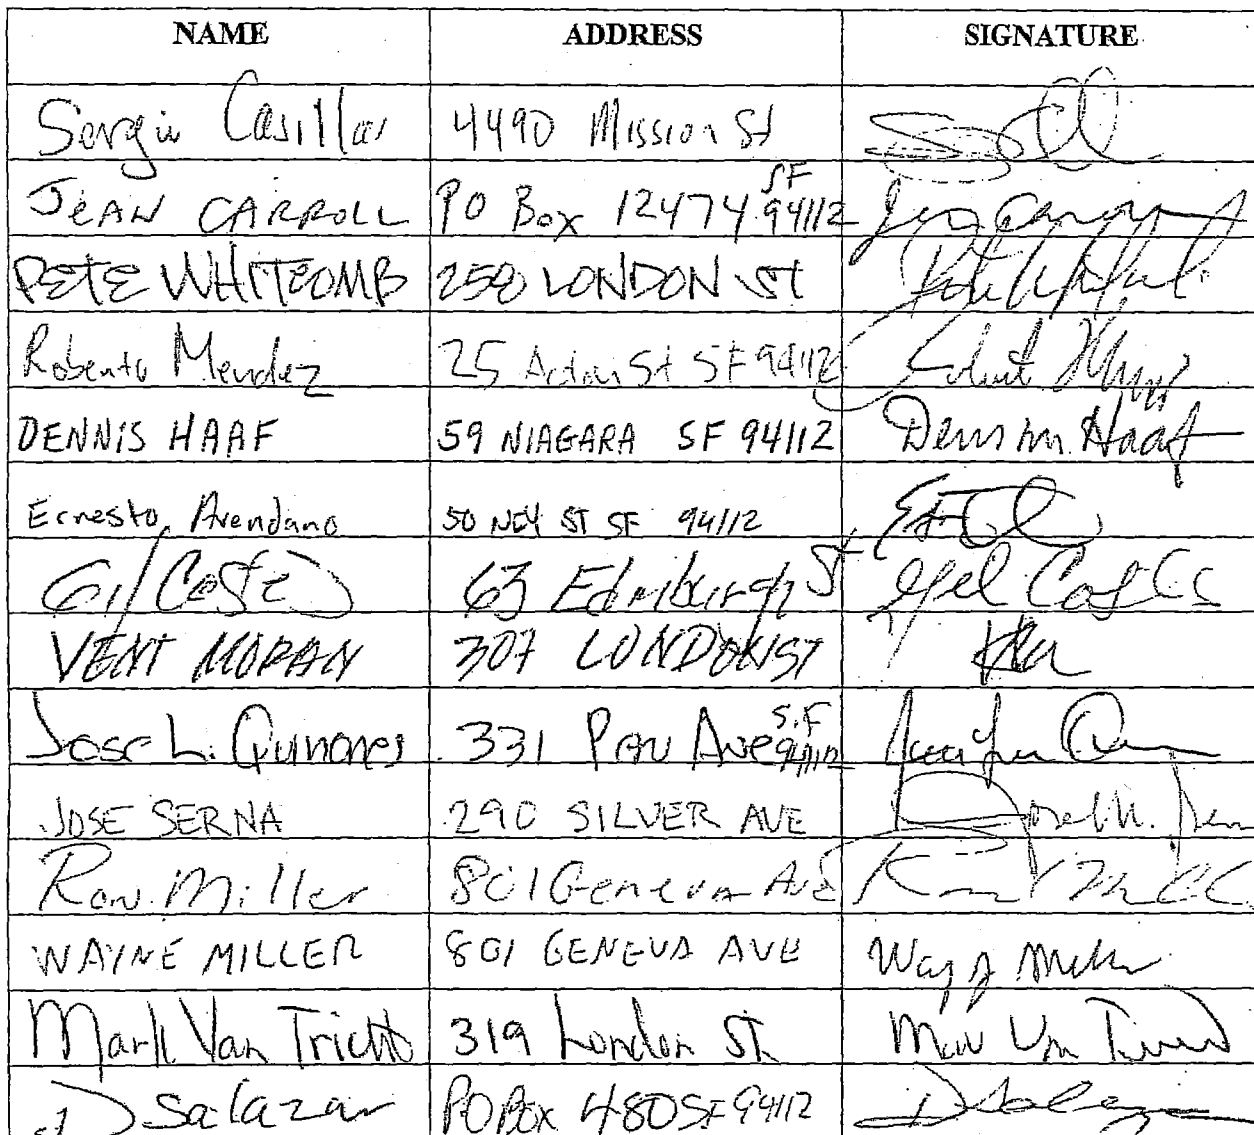 NAME ADDRESS SIGNATURE
Sergio Casillas 4490 Mission St
JEAN CARROLL PO Box 12474 SF 94112
PETE WHITCOMB 250 LONDON ST
Roberto Mendez 25 Acton St SF 94112
DENNIS HAAF 59 NIAGARA SF 94112 Dennis M. Haaf
Ernesto Avendano 50 NEY ST SF 94112
Gil Costes 63 Edinburgh St
VENT MORAN 307 LONDON ST
Jose L. Quinones 331 Peru Ave S.F 94112
JOSE SERNA 290 SILVER AVE
Ron Miller 801 Geneva Ave
WAYNE MILLER 801 GENEVA AVE
Mark Van Tricht 319 London St.
D Salazar PO Box 480 SF 94112